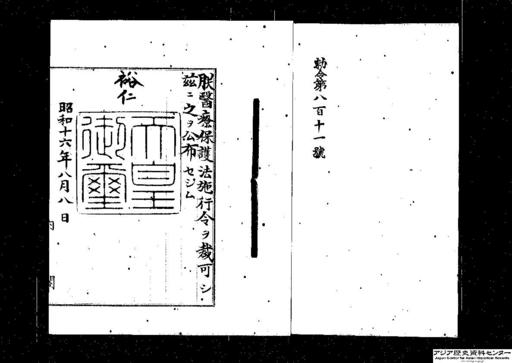 勅令第八百十一號
朕醫療保護法施行令ヲ裁可シ
茲ニ之ヲ公布セシム
裕仁
天皇御璽
昭和十六年八月八日
内閣
アジア歴史資料センター
Japan Center for Asian Historical Records